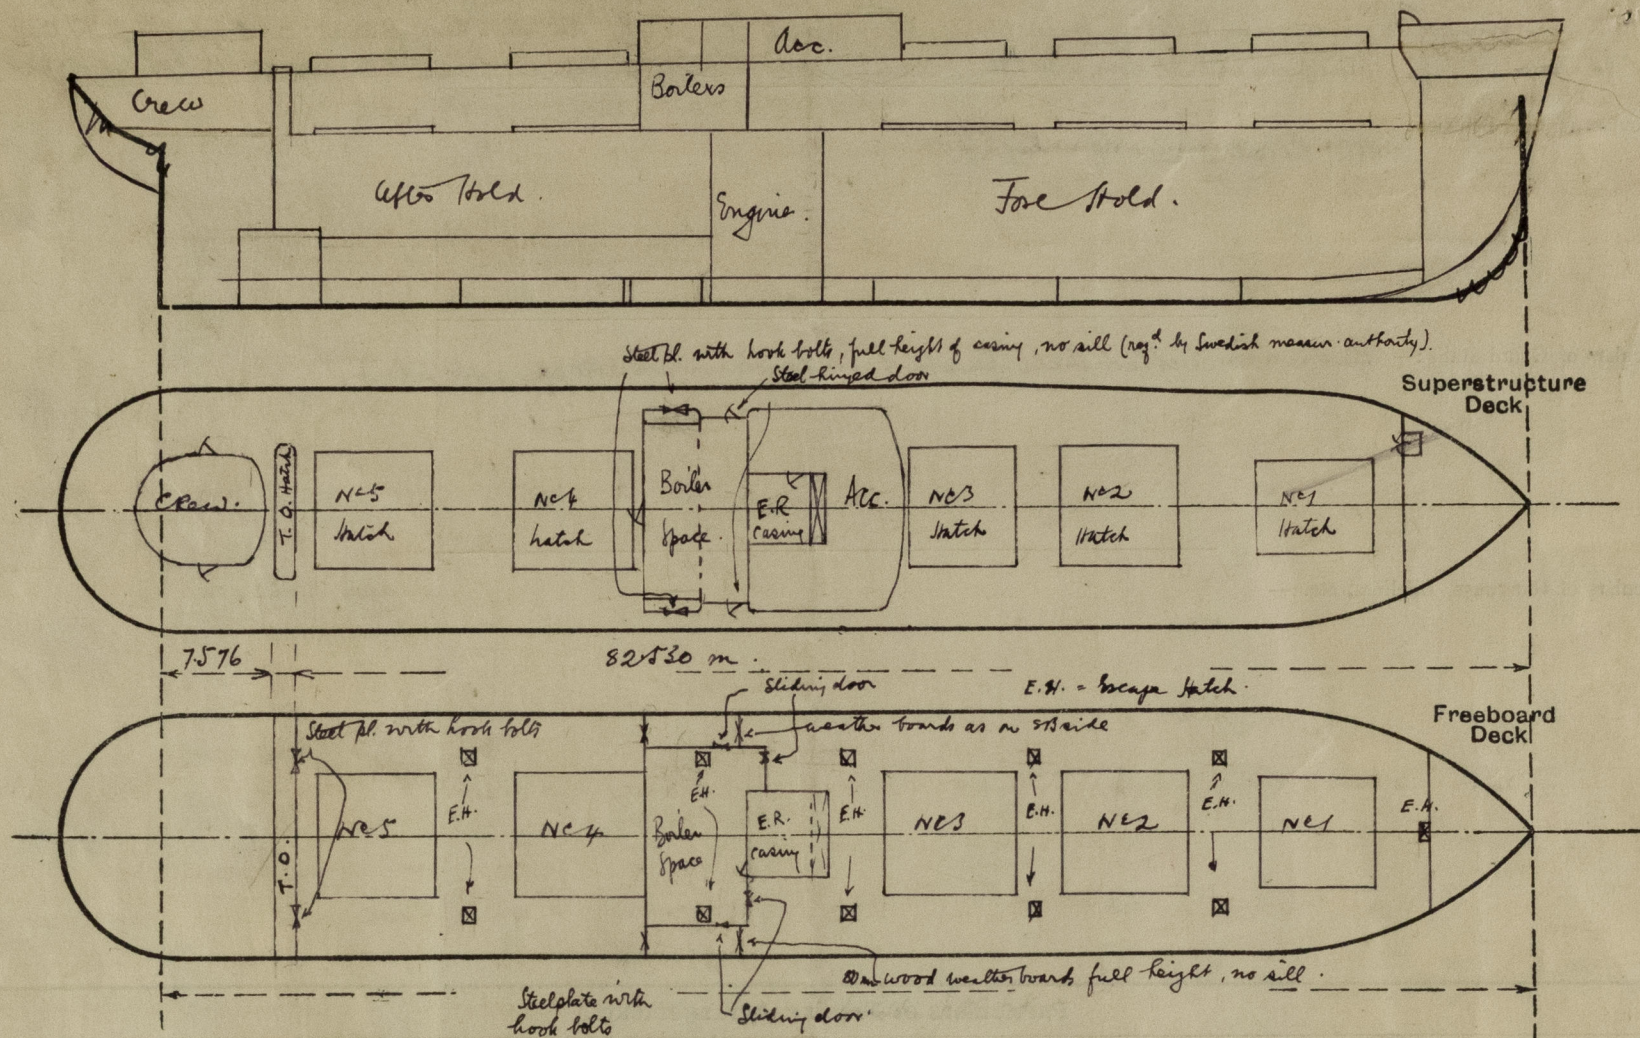 Acc.
Crew
Boilers
After Hold.
Engine.
Fore Hold.
Steel pl. with hook bolts, full height of casing, no sill (reqd. by Swedish measur. authority).
Steel hinged door
Superstructure
Deck
Crew.
T. O. Hatch
No 5
Hatch
No 4
hatch
Boiler
Space.
E.R
casing
Acc.
No 3
Hatch
No 2
Hatch
No 1
Hatch
7.576
82.530 m.
Sliding door
E.H. = Escape Hatch.
Freeboard
Deck
Steel pl. with hook bolts
weather boards as on SB side
E.H.
E.H.
E.H.
E.H.
E.H.
E.H.
No 5
No 4
Boiler
Space
E.R.
casing
No 3
No 2
No 1
T. O.
wood weatherboards full height, no sill.
Steelplate with
hook bolts
Sliding door